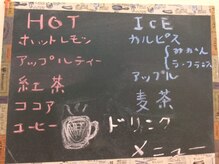 HOT
ホットレモン
アップルティー
紅茶
ココア
コーヒー
ICE
カルピス
みかん
ラ・フランス
アップル
麦茶
ドリンク
メニュー